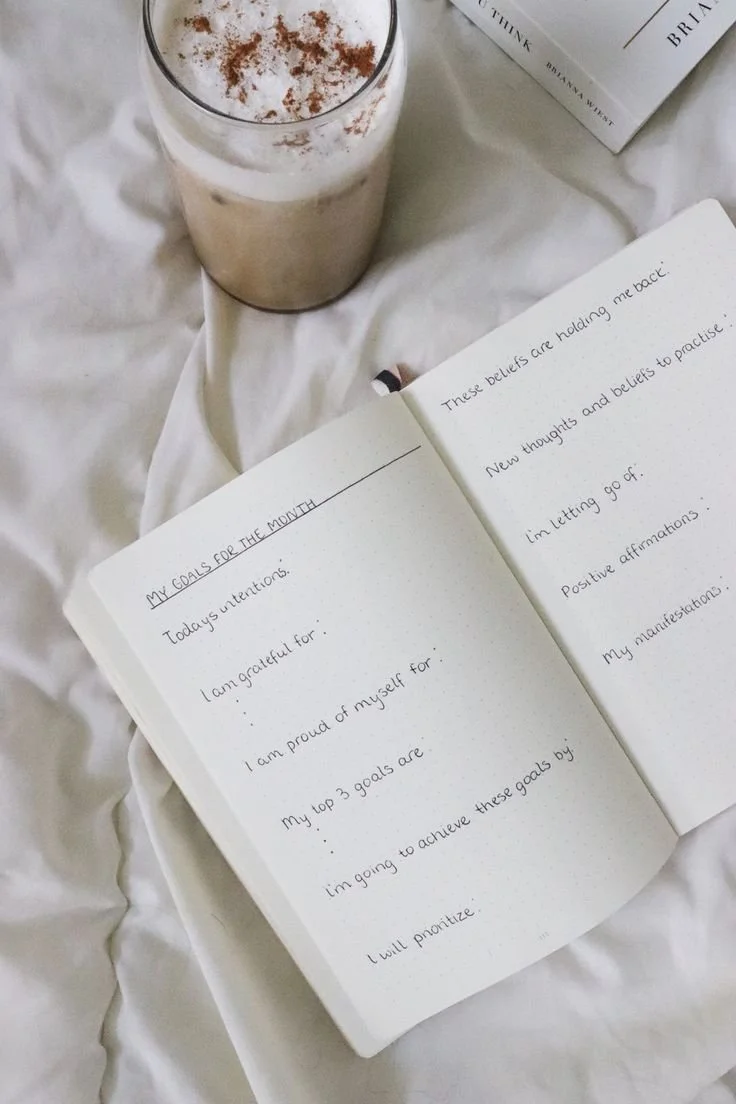 U THINK
BRIANNA WIEST
BRIA
MY GOALS FOR THE MONTH
Todays intentions:
I am grateful for:
I am proud of myself for:
My top 3 goals are
I'm going to achieve these goals by:
I will prioritize:
These beliefs are holding me back:
New thoughts and beliefs to practise:
I'm letting go of:
Positive affirmations:
My manifestations: